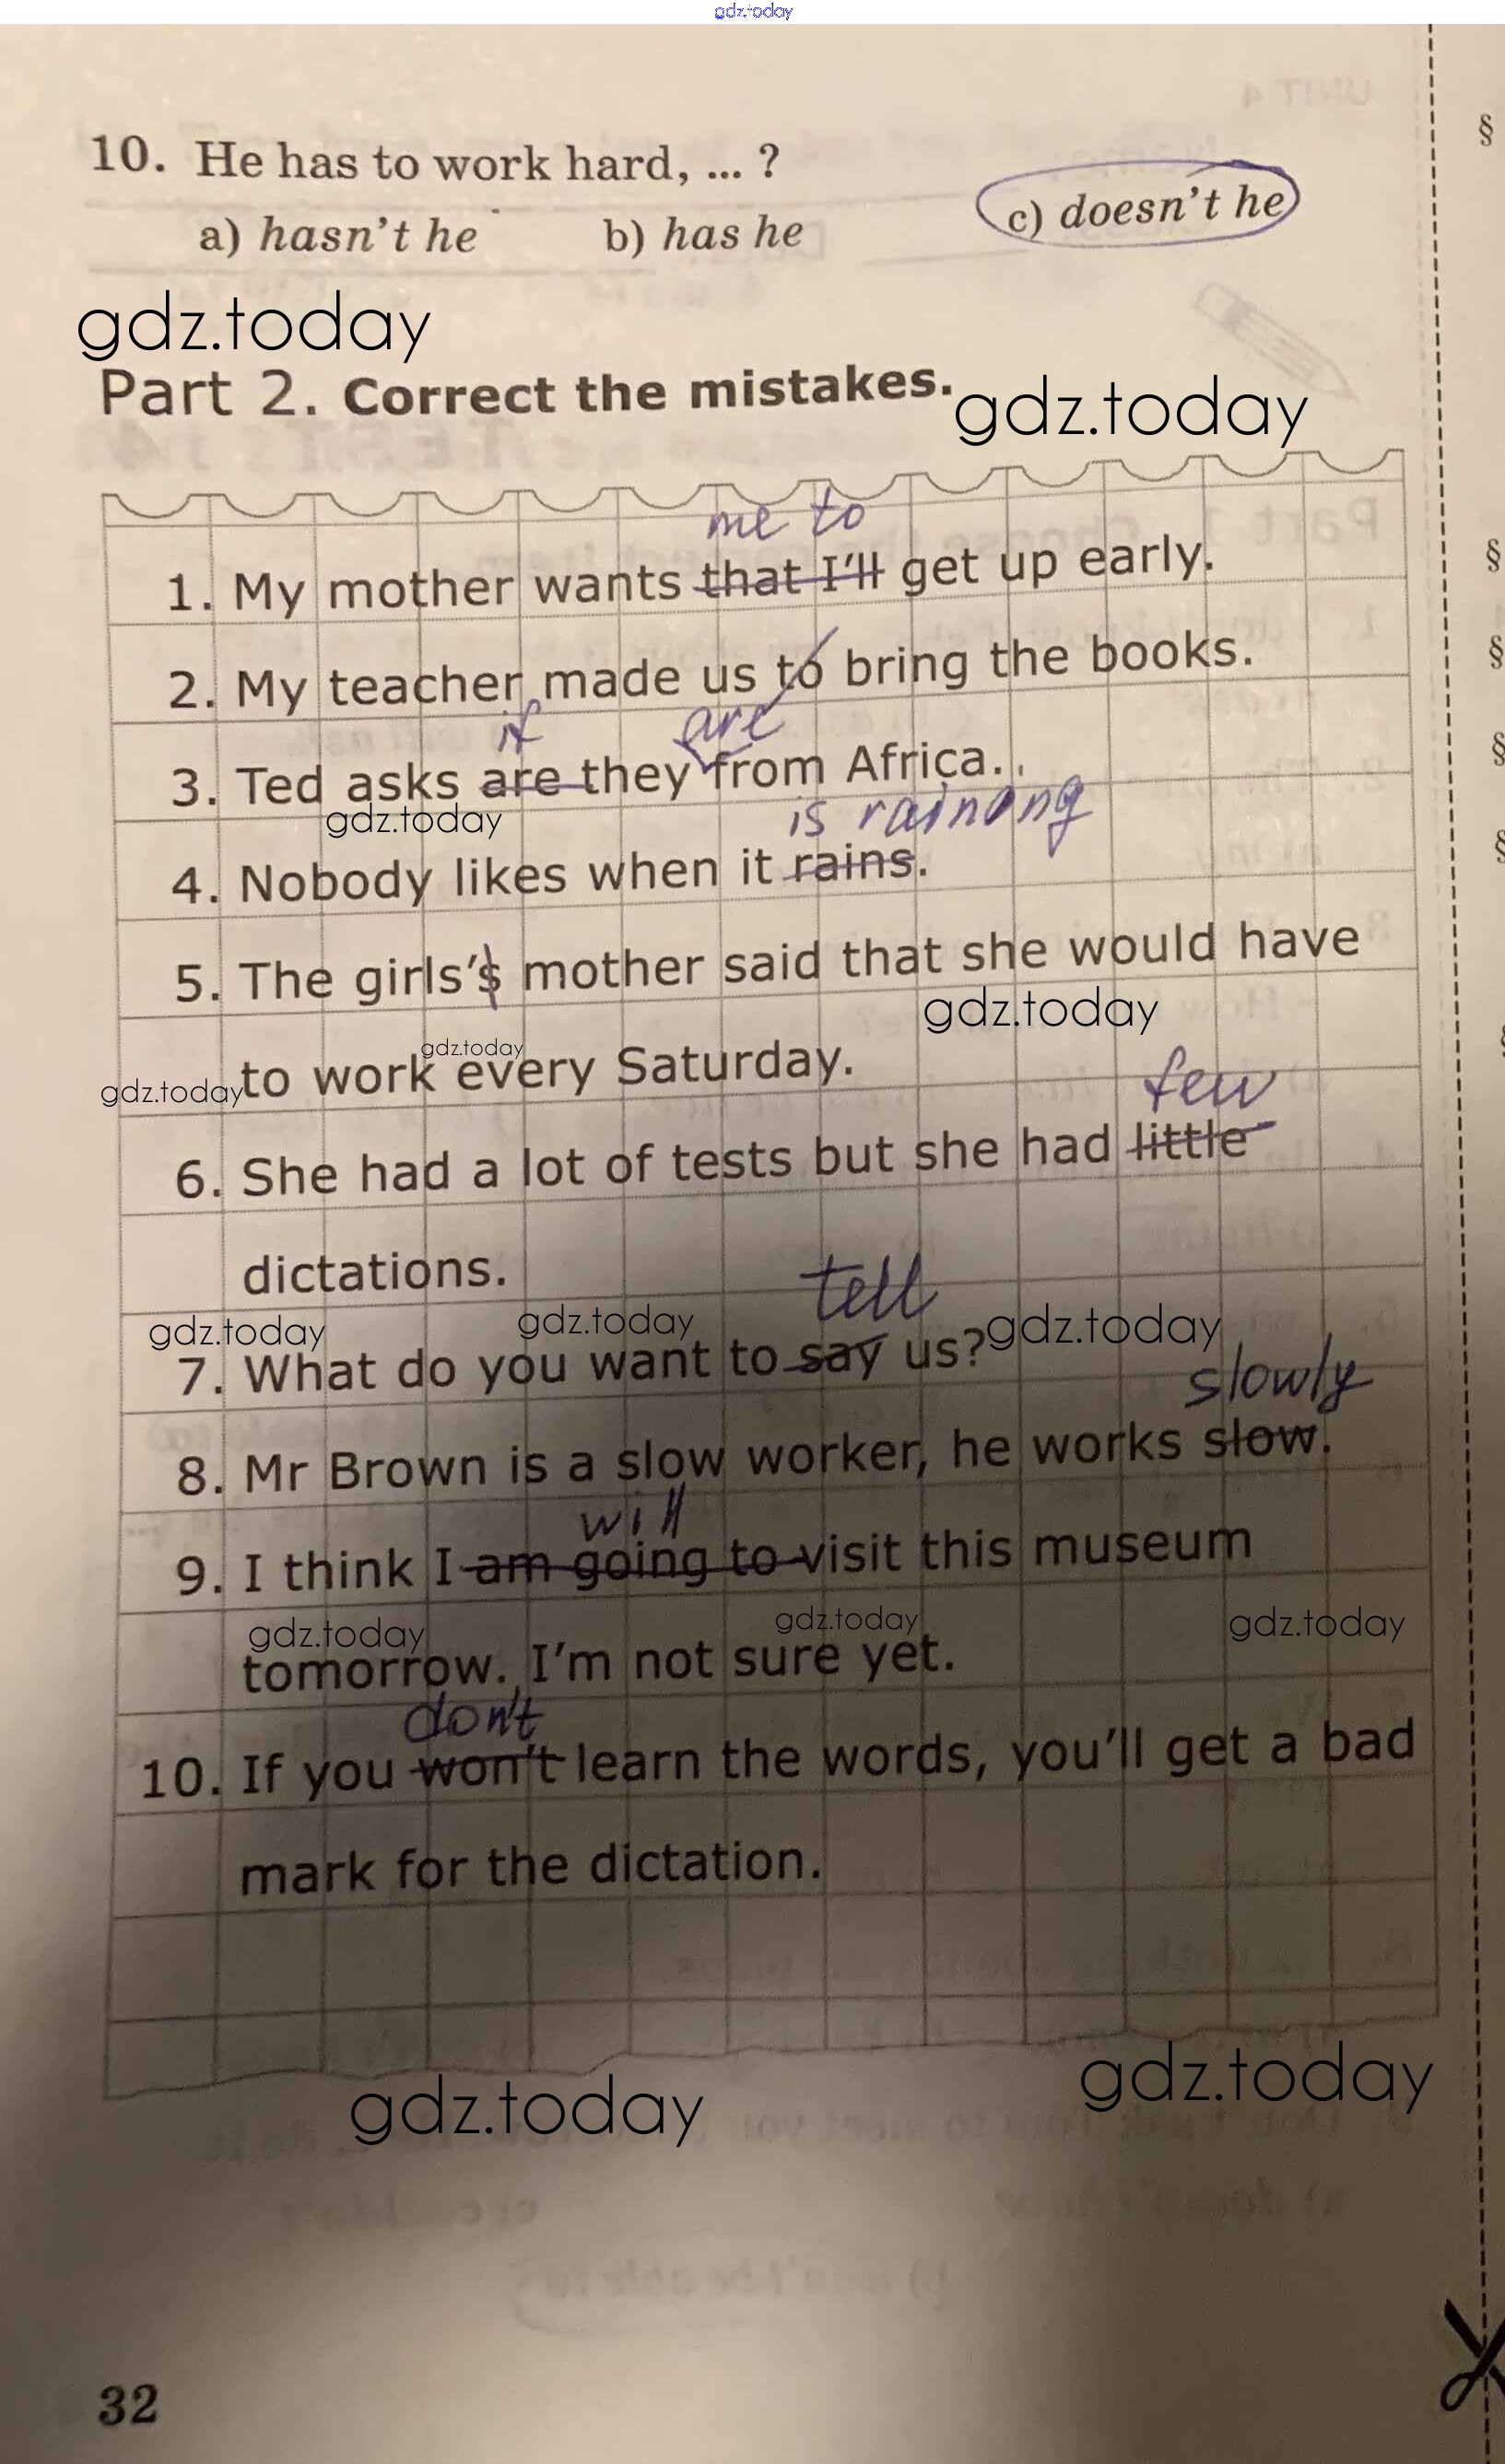 gdz.today
10. He has to work hard, ... ?
a) hasn't he b) has he c) doesn't he
gdz.today
Part 2. Correct the mistakes.
gdz.today
me to
1. My mother wants that I'll get up early.
2. My teacher made us to bring the books.
if are
3. Ted asks are they from Africa.
gdz.today
is raining
4. Nobody likes when it rains.
5. The girls's mother said that she would have
gdz.today
gdz.today
gdz.today to work every Saturday.
few
6. She had a lot of tests but she had little
dictations.
tell
gdz.today gdz.today gdz.today
7. What do you want to say us?
slowly
8. Mr Brown is a slow worker, he works slow.
will
9. I think I am going to visit this museum
gdz.today gdz.today gdz.today
tomorrow. I'm not sure yet.
don't
10. If you won't learn the words, you'll get a bad
mark for the dictation.
gdz.today gdz.today
32